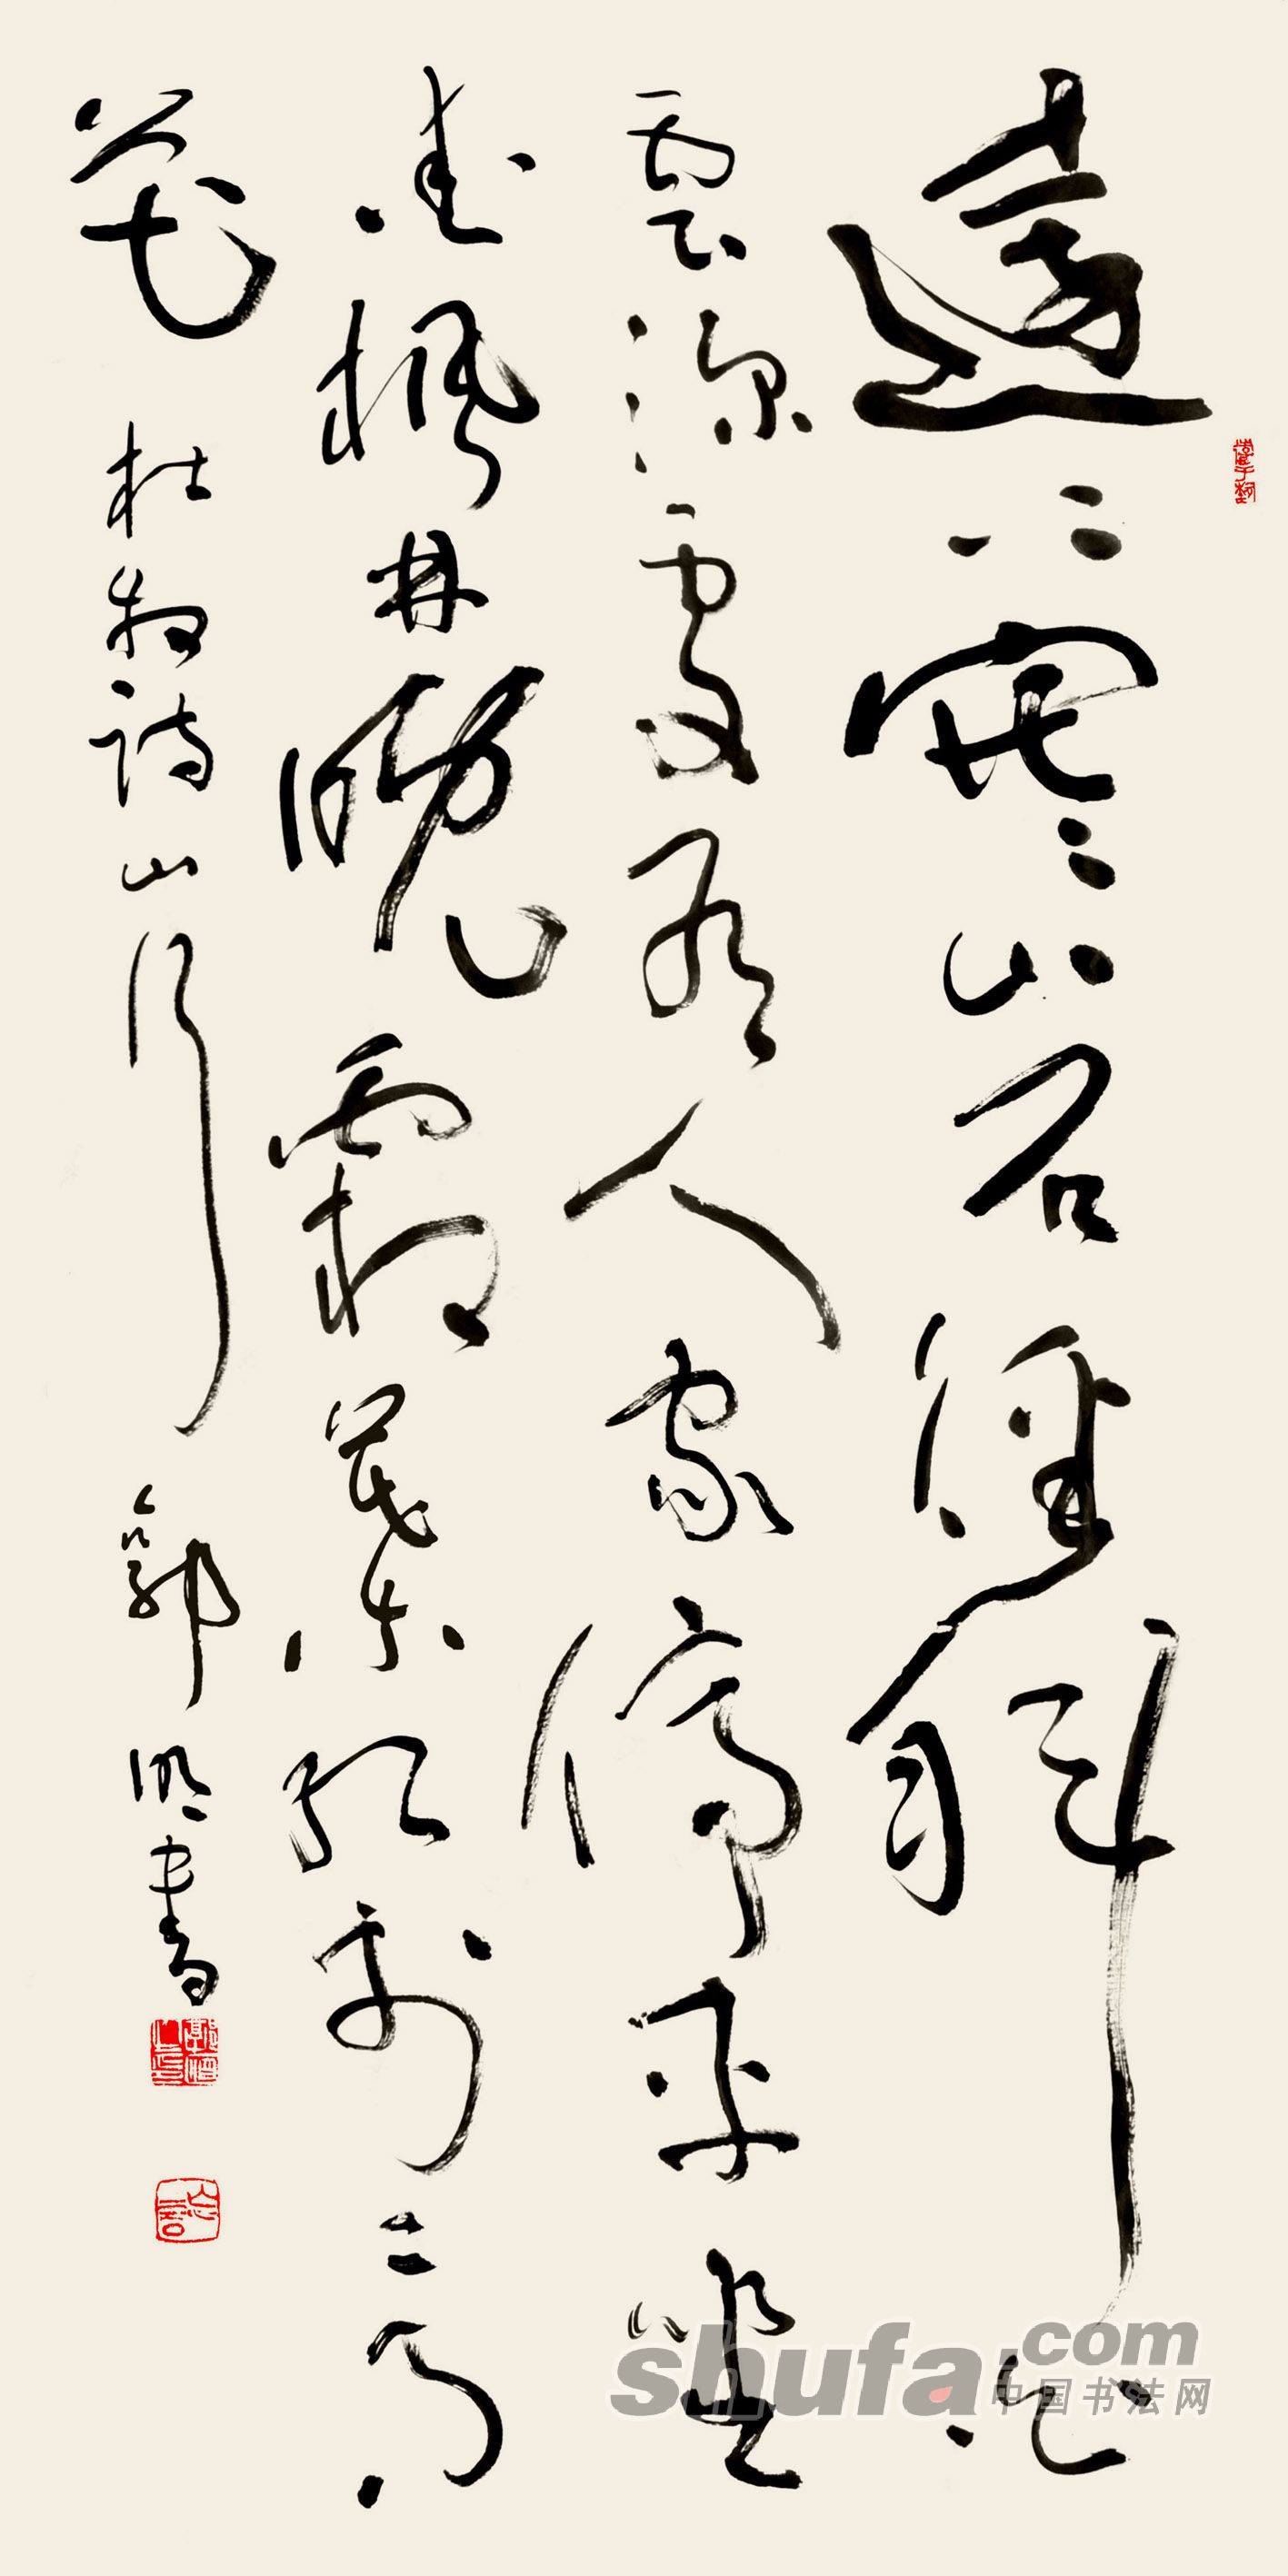 遠上寒山石徑斜白
雲深處有人家停車坐
愛楓林晚霜葉紅於二月
花 杜牧詩山行 郭明書
shufa.com
中国书法网